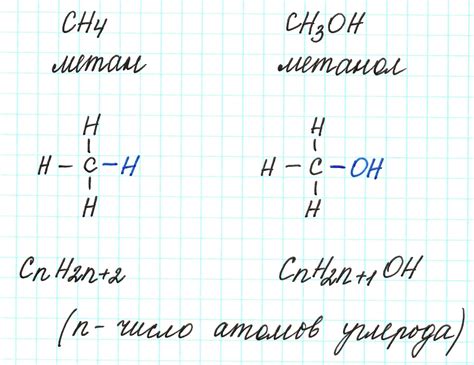 CH4 CH3OH
метан метанол
H H
H – C – H H – C – OH
H H
CnH2n+2 CnH2n+1OH
(n - число атомов углерода)